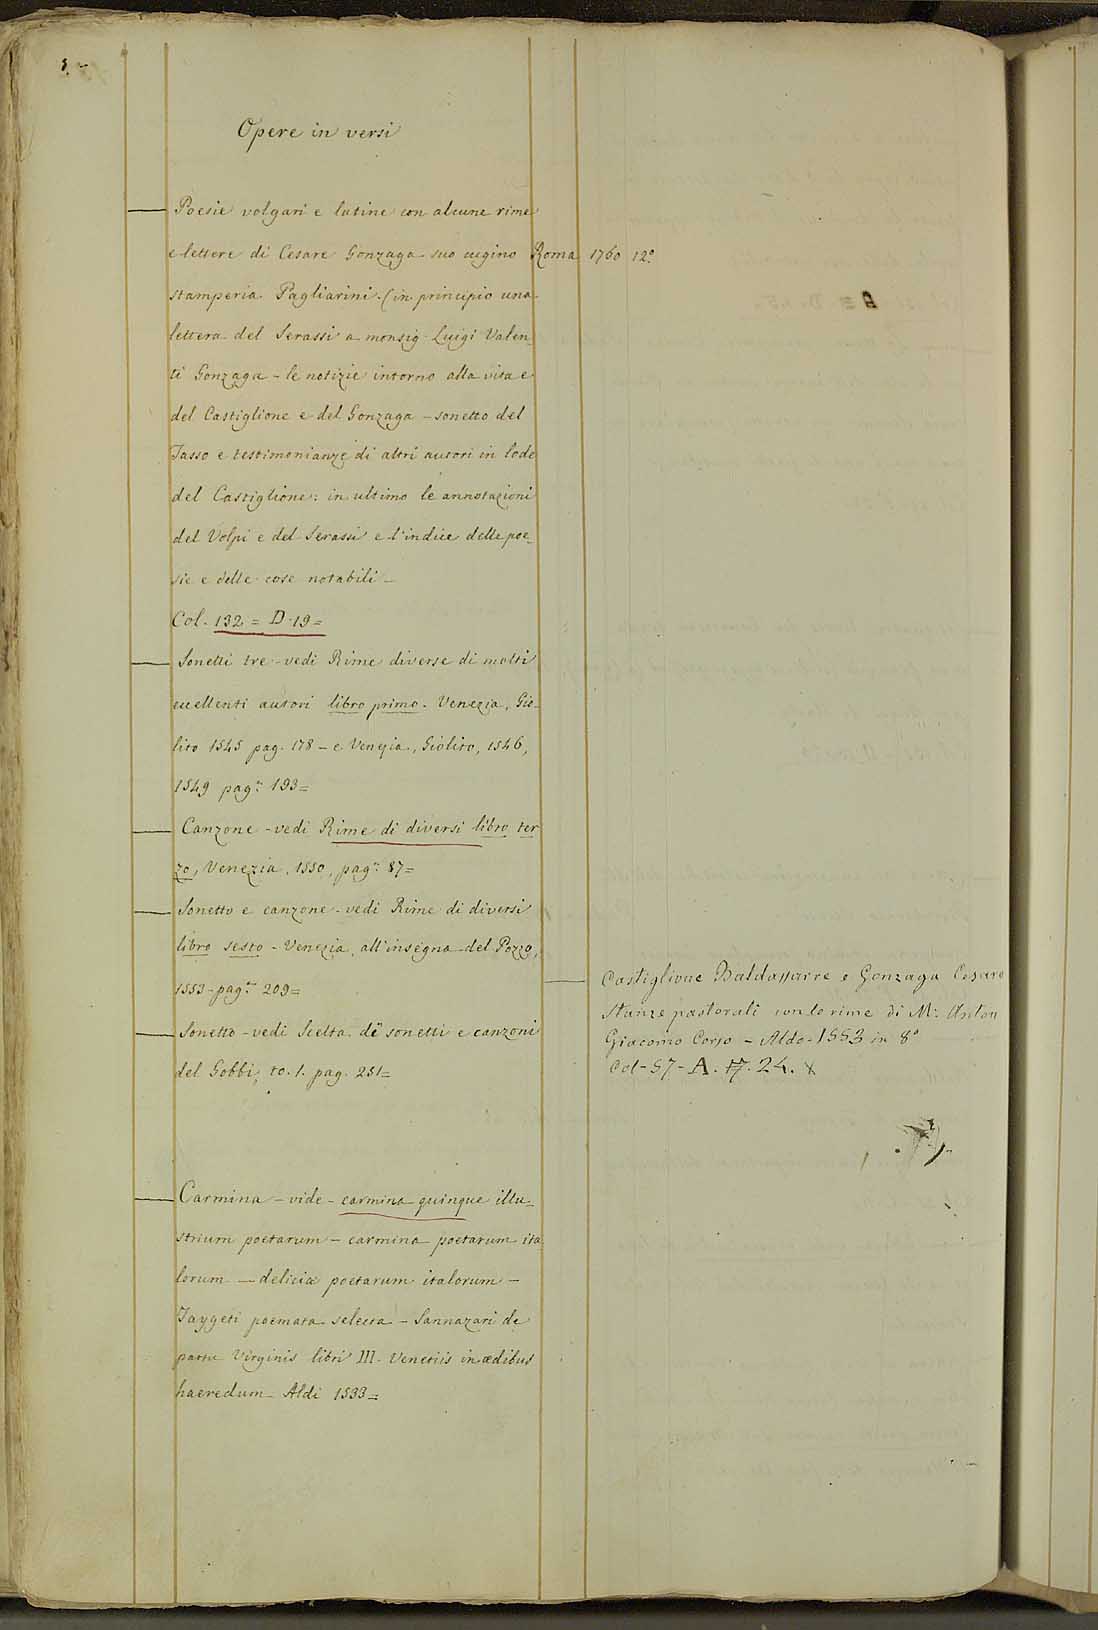 Opere in versi
Poesie volgari e latine con alcune rime
e lettere di Cesare Gonzaga suo cugino Roma 1760 12.°
stamperia Pagliarini. (in principio una
lettera del Serassi a monsig. Luigi Valen-
ti Gonzaga - le notizie intorno alla vita e
del Castiglione e del Gonzaga - sonetto del
Tasso e testimonianze di altri autori in lode
del Castiglione: in ultimo le annotazioni
del Volpi e del Serassi e l'indice delle poe-
sie e delle cose notabili -
Col. 132 = D. 19 =
Sonetti tre - vedi Rime diverse di molti
eccellenti autori libro primo. Venezia, Gio-
lito 1545 pag. 178 - e Venezia, Giolito, 1546,
1549 pag.ª 193 =
Canzone - vedi Rime di diversi libro ter
zo, Venezia, 1550, pag.ª 87 =
Sonetto e canzone - vedi Rime di diversi
libro sesto - Venezia, all'insegna del Pozzo,
1553 - pag.ª 209 =
Sonetto - vedi Scelta di sonetti e canzoni
del Gobbi, to. 1. pag. 251 =
Carmina - vide - carmina quinque illu-
strium poetarum - carmina poetarum ita
lorum - deliciæ poetarum italorum -
Taygeti poemata selecta - Sannazari de
partu Virginis libri III. Venetiis in ædibus
haeredum Aldi 1533 =
Castiglione Baldassarre e Gonzaga Cesare
Stanze pastorali con le rime di M. Anton
Giacomo Corso - Aldo - 1553 in 8°
Col - 57 - A. 17. 24. x